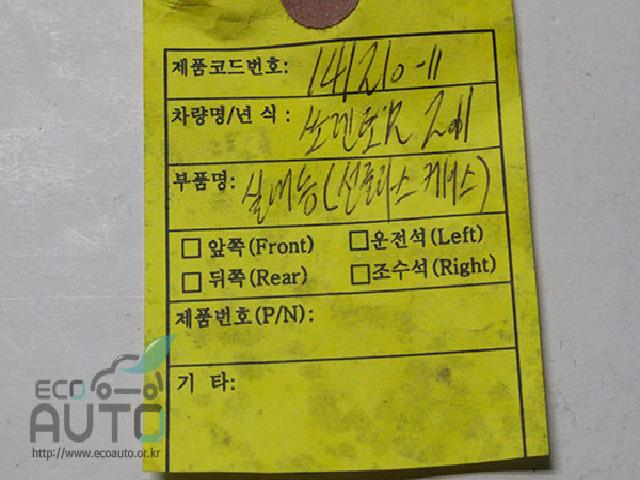 제품코드번호: 141210-11
차량명/년 식: 쏘렌토R 2011
부품명: 실내등(선글라스 케이스)
□ 앞쪽(Front) □ 운전석(Left)
□ 뒤쪽(Rear) □ 조수석(Right)
제품번호(P/N):
기 타:
ECO AUTO
http://www.ecoauto.or.kr